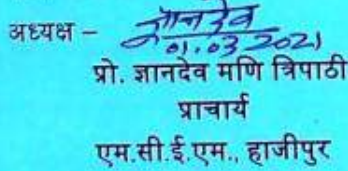 अध्यक्ष – ज्ञानदेव
01.03.2021
प्रो. ज्ञानदेव मणि त्रिपाठी
प्राचार्य
एम.सी.ई.एम., हाजीपुर